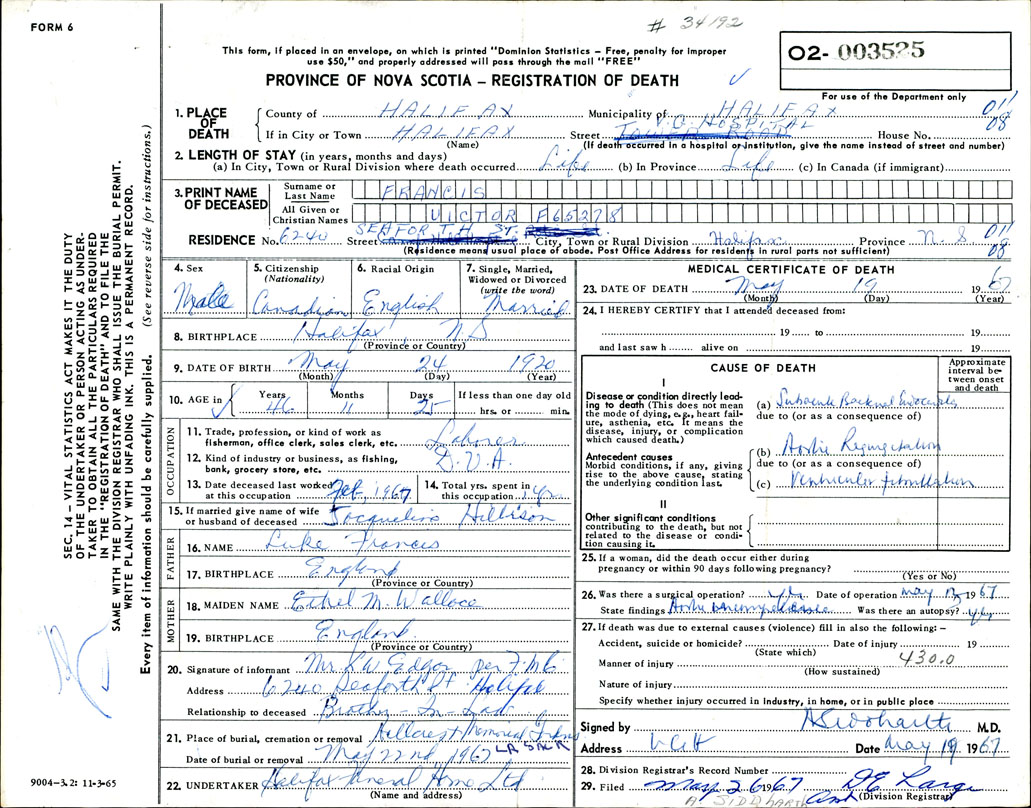 FORM 6
# 34192
This form, if placed in an envelope, on which is printed "Dominion Statistics – Free, penalty for improper
use $50," and properly addressed will pass through the mail "FREE"
PROVINCE OF NOVA SCOTIA – REGISTRATION OF DEATH
O2- 003525
For use of the Department only
011
08
1. PLACE OF DEATH
County of HALIFAX Municipality of HALIFAX
V. G. HOSPITAL
If in City or Town HALIFAX Street TOWER ROAD House No.
(Name) (If death occurred in a hospital or institution, give the name instead of street and number)
2. LENGTH OF STAY (in years, months and days)
(a) In City, Town or Rural Division where death occurred Life (b) In Province Life (c) In Canada (if immigrant)
3. PRINT NAME OF DECEASED
Surname or Last Name FRANCIS
All Given or Christian Names VICTOR F65278
RESIDENCE No. 6240 Street SEAFORTH ST. City, Town or Rural Division Halifax Province N. S
011
08
(Residence means usual place of abode. Post Office Address for residents in rural parts not sufficient)
4. Sex
Male
5. Citizenship
(Nationality)
Canadian
6. Racial Origin
English
7. Single, Married,
Widowed or Divorced
(write the word)
Married
8. BIRTHPLACE Halifax NS
(Province or Country)
9. DATE OF BIRTH May 24 1920
(Month) (Day) (Year)
10. AGE in Years Months Days If less than one day old
46 11 25 hrs. or min.
OCCUPATION
11. Trade, profession, or kind of work as
fisherman, office clerk, sales clerk, etc. Laborer
12. Kind of industry or business, as fishing,
bank, grocery store, etc. D.V.A.
13. Date deceased last worked
at this occupation Feb, 1967
14. Total yrs. spent in
this occupation 1 yr.
15. If married give name of wife
or husband of deceased Jacqueline
FATHER
16. NAME Luke Francis
17. BIRTHPLACE England
(Province or Country)
MOTHER
18. MAIDEN NAME Ethel M. Wallace
19. BIRTHPLACE England
(Province or Country)
20. Signature of informant Mr. Edgar Per
Address 6240 Seaforth St Halifax
Relationship to deceased Brother-In-Law
21. Place of burial, cremation or removal Hillcrest Memorial
Date of burial or removal May 22nd 1967
22. UNDERTAKER Halifax Funeral Home Ltd
(Name and address)
MEDICAL CERTIFICATE OF DEATH
23. DATE OF DEATH May 19 1967
(Month) (Day) (Year)
24. I HEREBY CERTIFY that I attended deceased from:
19 to 19
and last saw h alive on 19
CAUSE OF DEATH
Approximate
interval be-
tween onset
and death
I
Disease or condition directly lead-
ing to death (This does not mean
the mode of dying, e.g., heart fail-
ure, asthenia, etc. It means the
disease, injury, or complication
which caused death.)
(a) Subacute Bacterial Endocarditis
due to (or as a consequence of)
Antecedent causes
Morbid conditions, if any, giving
rise to the above cause, stating
the underlying condition last.
(b) Aortic Regurgitation
due to (or as a consequence of)
(c) Ventricular fibrillation
II
Other significant conditions
contributing to the death, but not
related to the disease or condi-
tion causing it.
25. If a woman, did the death occur either during
pregnancy or within 90 days following pregnancy?
(Yes or No)
26. Was there a surgical operation? yes Date of operation May 1967
State findings Aortic Was there an autopsy? yes
27. If death was due to external causes (violence) fill in also the following: –
Accident, suicide or homicide? Date of injury 19
(State which) 430.0
Manner of injury
(How sustained)
Nature of injury
Specify whether injury occurred in industry, in home, or in public place
Signed by A Siddharth M.D.
Address VGH Date May 19 1967
28. Division Registrar's Record Number
29. Filed May 26 1967
(Division Registrar)
A. SIDDHARTH
SEC. 14 – VITAL STATISTICS ACT MAKES IT THE DUTY
OF THE UNDERTAKER OR PERSON ACTING AS UNDER-
TAKER TO OBTAIN ALL THE PARTICULARS REQUIRED
IN THE "REGISTRATION OF DEATH" AND TO FILE THE
SAME WITH THE DIVISION REGISTRAR WHO SHALL ISSUE THE BURIAL PERMIT.
WRITE PLAINLY WITH UNFADING INK. THIS IS A PERMANENT RECORD.
Every item of information should be carefully supplied. (See reverse side for instructions.)
9004–3.2: 11-3-65